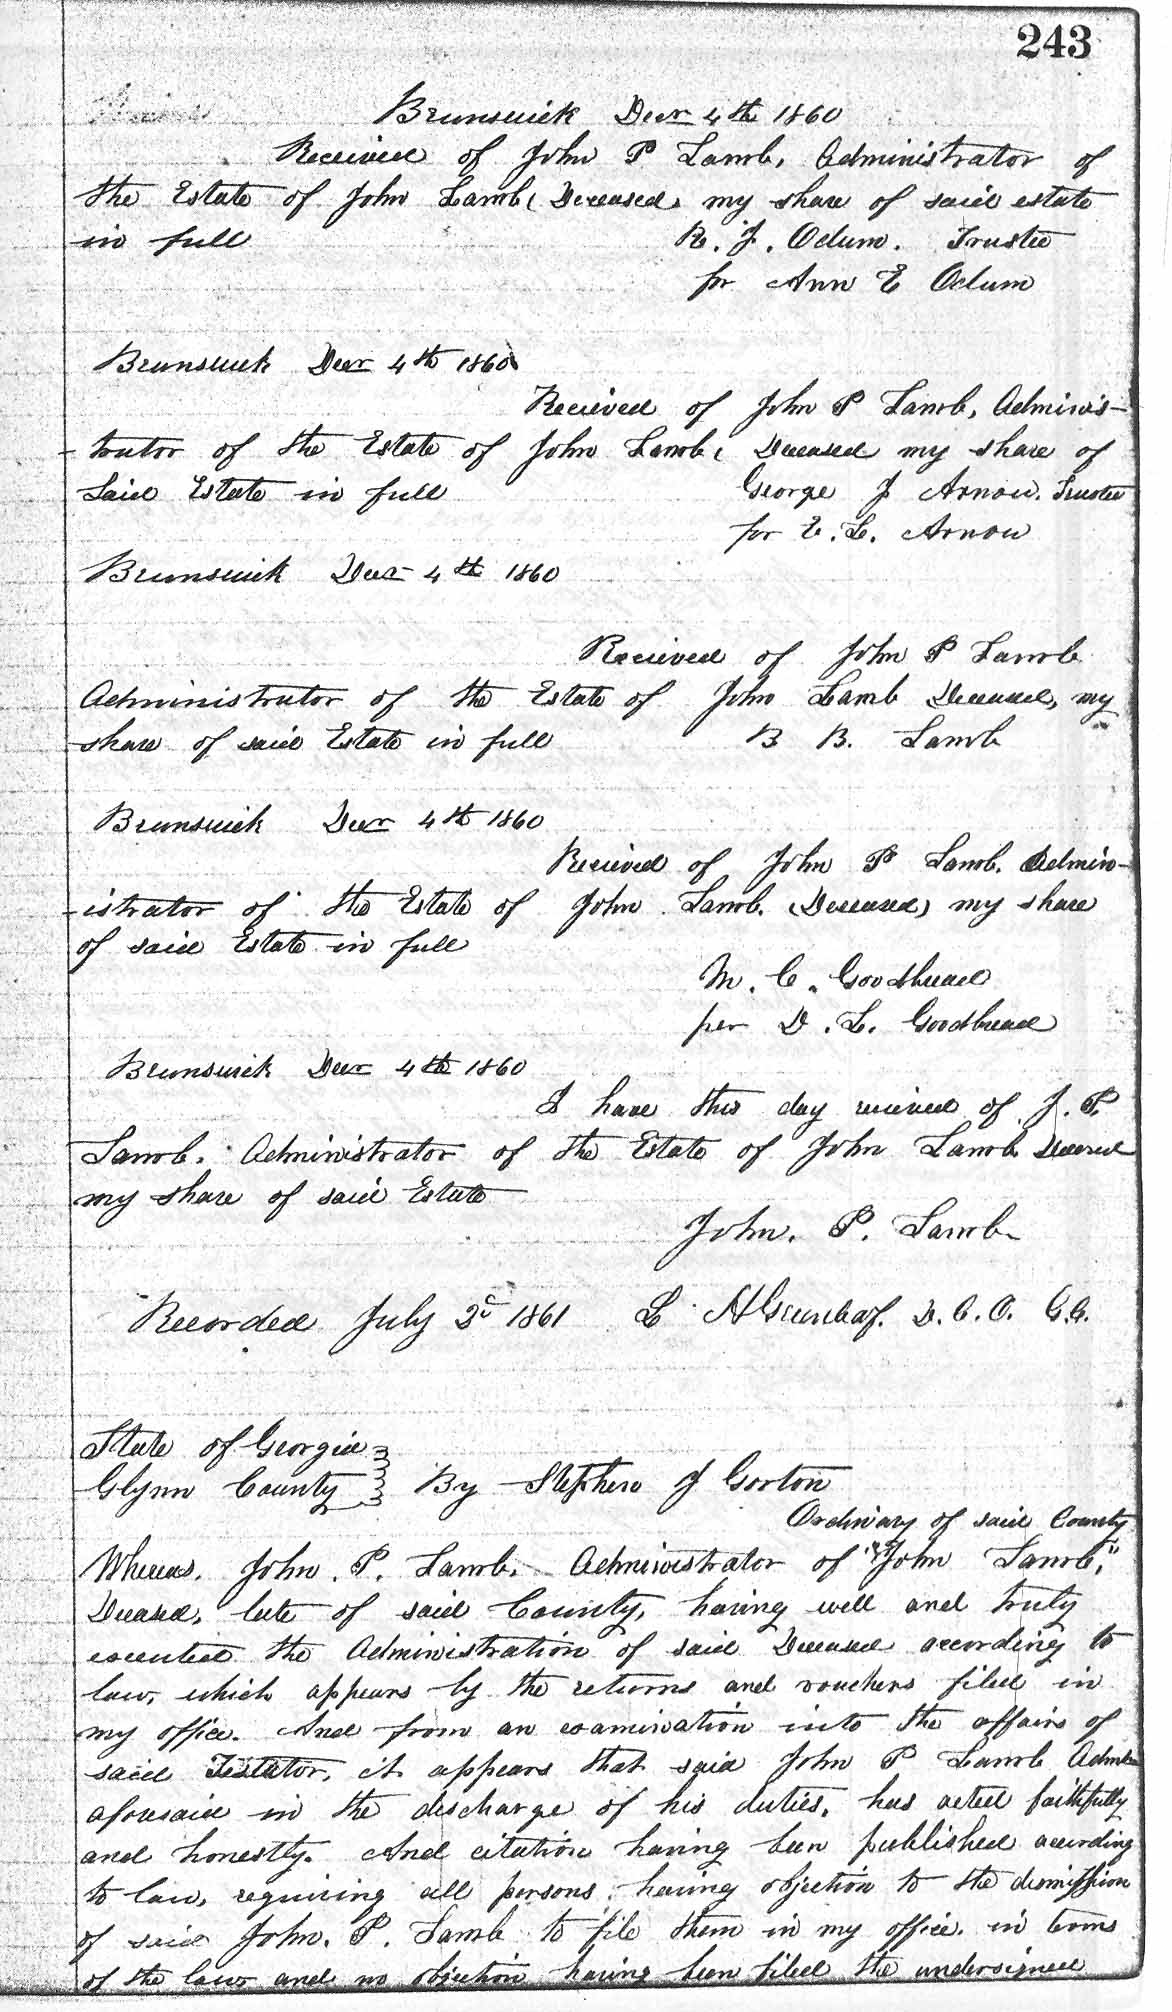 243
Brunswick Decr 4th 1860
Received of John P Lamb, Administrator of
the Estate of John Lamb, Deceased, my share of said estate
in full R. J. Odum. Trustee
for Ann E Odum
Brunswick Decr 4th 1860
Recieved of John P Lamb, Adminis-
trator of the Estate of John Lamb, Deceased my share of
Said Estate in full George J Arnow. Trustee
for E. L. Arnow
Brunswick Decr 4th 1860
Recieved of John P Lamb
Administrator of the Estate of John Lamb Deceased, my
share of said Estate in full B B. Lamb
Brunswick Decr 4th 1860
Recieved of John P Lamb. Admin-
-istrator of the Estate of John Lamb. (Deceased) my share
of said Estate in full
M. C. Goodbread
per D. L. Goodbread
Brunswick Decr 4th 1860
I have this day recieved of J. P.
Lamb. Administrator of the Estate of John Lamb Deceased
my share of said Estate
John. P. Lamb
Recorded July 2d 1861 L H Greenleaf. D. C. O. G.C.
State of Georgia
Glynn County By Stephen J Gorton
Ordinary of said County
Whereas. John. P. Lamb. Administrator of "John Lamb,"
Deceased, late of said County, having well and truly
executed the Administration of said Deceased according to
law, which appears by the returns and vouchers filed in
my office. And from an examination into the affairs of
said Testator, it appears that said John P Lamb Admr
aforesaid in the discharge of his duties, has acted faithfully
and honestly. And citation having been published according
to law, requiring all persons having objection to the dismission
of said John. P. Lamb to file them in my office. in terms
of the law and no objection having been filed the undersigned